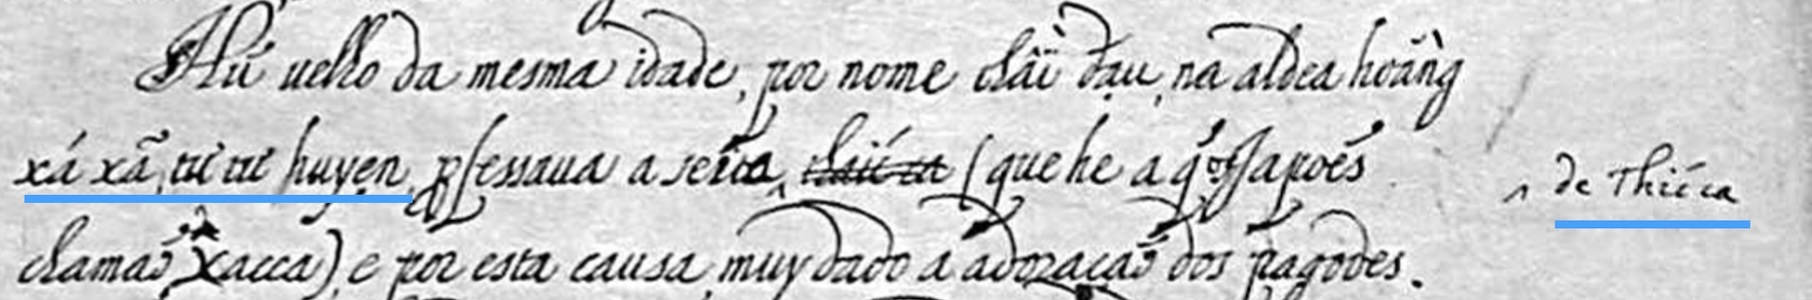 Hú uelho da mesma idade, por nome chãi dạu, na aldea hoảng
xá xã, tư tư huyẹn, pfessaua a seita, (que he a q̃ os Japoẽs
de Thiéca
chamaõ Xacca), e por esta causa, muy dado á adoraçaõ dos pagodes.